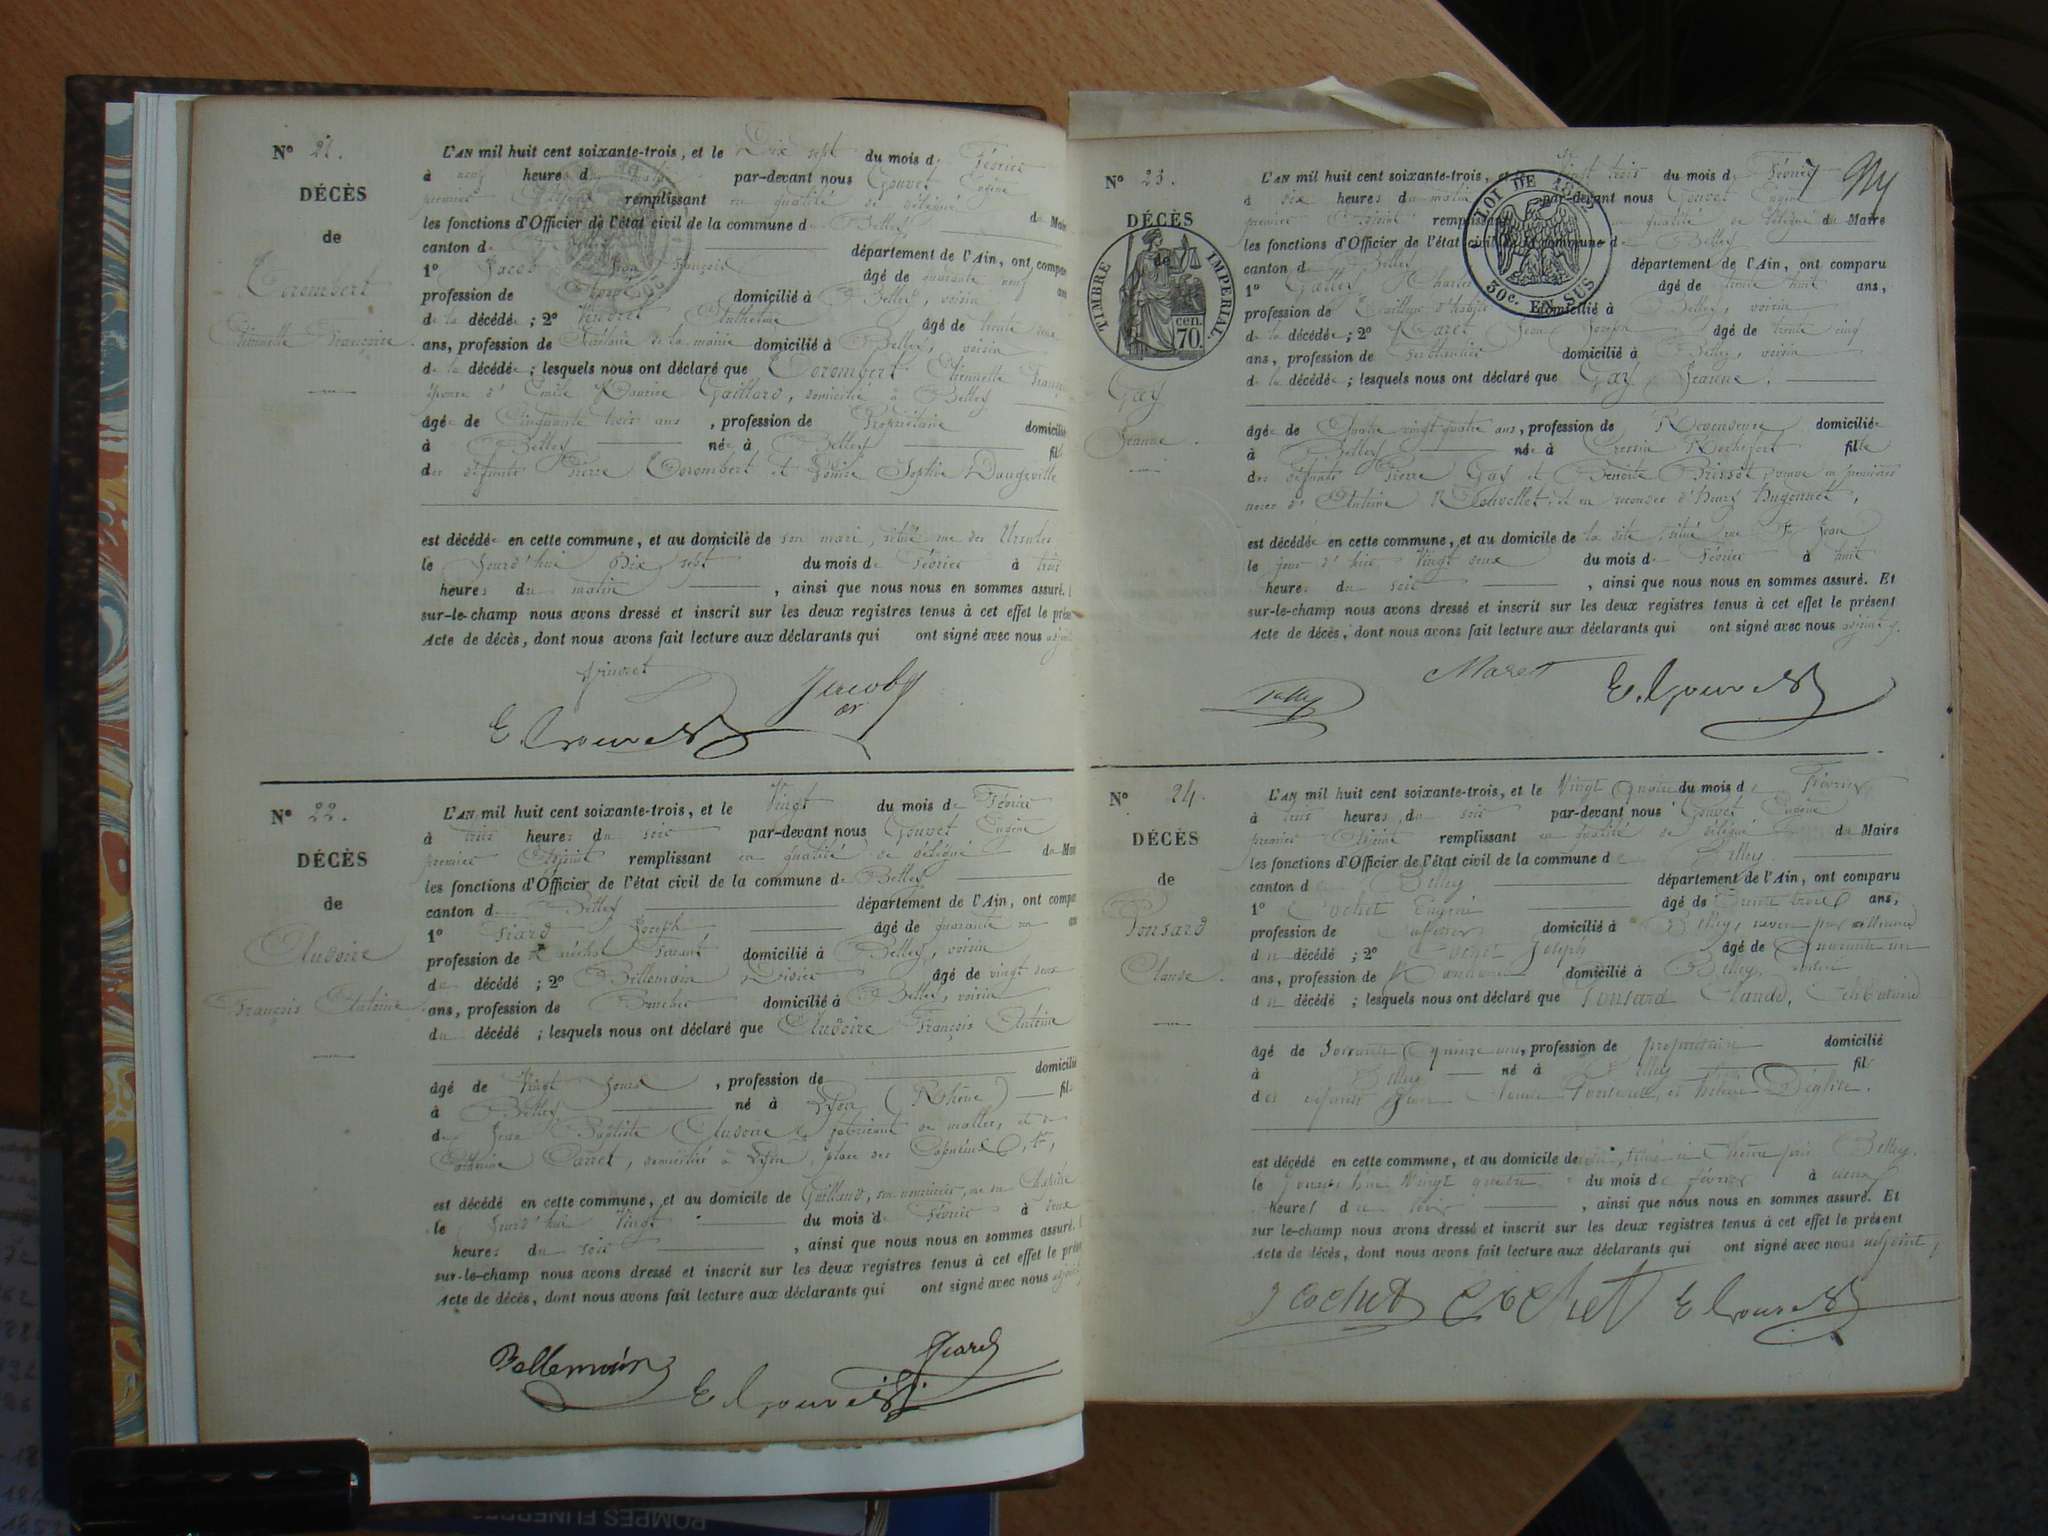 N° 21.
DÉCÈS
de
Corombert
Etiennette Françoise.
L'AN mil huit cent soixante-trois, et le Dix sept du mois de Février
à neuf heures du matin par-devant nous Gouvet Eugène
premier Adjoint remplissant en qualité de délégué du Maire
les fonctions d'Officier de l'état civil de la commune de Belley
canton de département de l'Ain, ont compar
1° Jacob Jean François âgé de quarante neuf ans
profession de domicilié à Belley, voisin
de la décédée ; 2° Vivret Anthelme âgé de trente
ans, profession de Secrétaire de la mairie domicilié à Belley, voisin
de la décédée ; lesquels nous ont déclaré que Corombert Etiennette Franç
épouse d' Emile Maurice Gaillard, domicilié à Belley
âgée de Cinquante trois ans , profession de Propriétaire domicilié
à Belley née à Belley fil
des défunts Pierre Corombert et Louise Sophie Daugeville
est décédée en cette commune, et au domicile de son mari, situé rue des Ursules
le Jourd'hui Dix sept du mois de Février à trois
heures du matin , ainsi que nous nous en sommes assuré.
sur-le-champ nous avons dressé et inscrit sur les deux registres tenus à cet effet le prése
Acte de décès, dont nous avons fait lecture aux déclarants qui ont signé avec nous adjoint
Jacob
E. Gouvet
N° 22.
DÉCÈS
de
Audoire
François Antoine.
L'AN mil huit cent soixante-trois, et le Vingt du mois de Février
à trois heures du soir par-devant nous Gouvet Eugène
premier Adjoint remplissant en qualité de délégué du Mair
les fonctions d'Officier de l'état civil de la commune de Belley
canton de Belley département de l'Ain, ont compar
1° Fiard Joseph âgé de quarante un an
profession de Maréchal Ferrant domicilié à Belley, voisin
du décédé ; 2° Bellemain Désiré âgé de vingt deux
ans, profession de domicilié à Belley, voisin
du décédé ; lesquels nous ont déclaré que Audoire François Antoine
âgé de Vingt Jours , profession de domicilié
à Belley né à Lyon (Rhône) fil
de Jean Baptiste Audoire fabricant de malles, et de
Catherine Carret, domiciliés à Lyon, place des Capucins
est décédé en cette commune, et au domicile de Guilland, son nourricier, rue du
le Jourd'hui Vingt du mois de Février à deux
heures du soir , ainsi que nous nous en sommes assuré.
sur-le-champ nous avons dressé et inscrit sur les deux registres tenus à cet effet le prése
Acte de décès, dont nous avons fait lecture aux déclarants qui ont signé avec nous adjoint
Bellemain
Fiard
E Gouvet
N° 23.
DÉCÈS
de
TIMBRE IMPERIAL.
70. cen.
LOI DE 18
30c. EN SUS
Gay
Jeanne.
L'AN mil huit cent soixante-trois, et le Vingt trois du mois de Février
à dix heures du matin par-devant nous Gouvet Eugène
premier Adjoint remplissant en qualité de délégué du Maire
les fonctions d'Officier de l'état civil de la commune de Belley
canton de Belley département de l'Ain, ont comparu
1° Charles âgé de trente huit ans,
profession de Tailleur d'habits domicilié à Belley, voisin
de la décédée ; 2° Maret Jean Joseph âgé de trente cinq
ans, profession de Ferblantier domicilié à Belley, voisin
de la décédée ; lesquels nous ont déclaré que Gay Jeanne,
âgée de Quatre vingt quatre ans, profession de Revendeuse domiciliée
à Belley née à Cressin Rochefort fille
des défunts Pierre Gay et Benoite Brissot, veuve en premières
noces de Antoine et en secondes d'Henry Hugonnet,
est décédée en cette commune, et au domicile de la dite, situé rue St Jean
le jour d'hier Vingt deux du mois de Février à huit
heures du soir , ainsi que nous nous en sommes assuré. Et
sur-le-champ nous avons dressé et inscrit sur les deux registres tenus à cet effet le présent
Acte de décès, dont nous avons fait lecture aux déclarants qui ont signé avec nous adjoint.
Maret
E. Gouvet
N° 24.
DÉCÈS
de
Ponsard
Claude.
L'AN mil huit cent soixante-trois, et le Vingt Quatre du mois de Février
à trois heures du soir par-devant nous Gouvet Eugène
premier Adjoint remplissant en qualité de délégué du Maire
les fonctions d'Officier de l'état civil de la commune de Belley
canton de Belley département de l'Ain, ont comparu
1° Cochet Eugène âgé de Trente trois ans,
profession de domicilié à Belley, neveu par alliance
du décédé ; 2° Cochet Joseph âgé de Quarante un
ans, profession de domicilié à Belley,
du décédé ; lesquels nous ont déclaré que Ponsard Claude, Célibataire
âgé de Soixante Quinze ans, profession de propriétaire domicilié
à Belley né à Belley fils
des défunts
est décédé en cette commune, et au domicile de près Belley.
le Jourd'hui Vingt quatre du mois de février à deux
heures du soir , ainsi que nous nous en sommes assuré. Et
sur le-champ nous avons dressé et inscrit sur les deux registres tenus à cet effet le présent
Acte de décès, dont nous avons fait lecture aux déclarants qui ont signé avec nous adjoint,
J Cochet Cochet E Gouvet
POMPES FUNEBRES